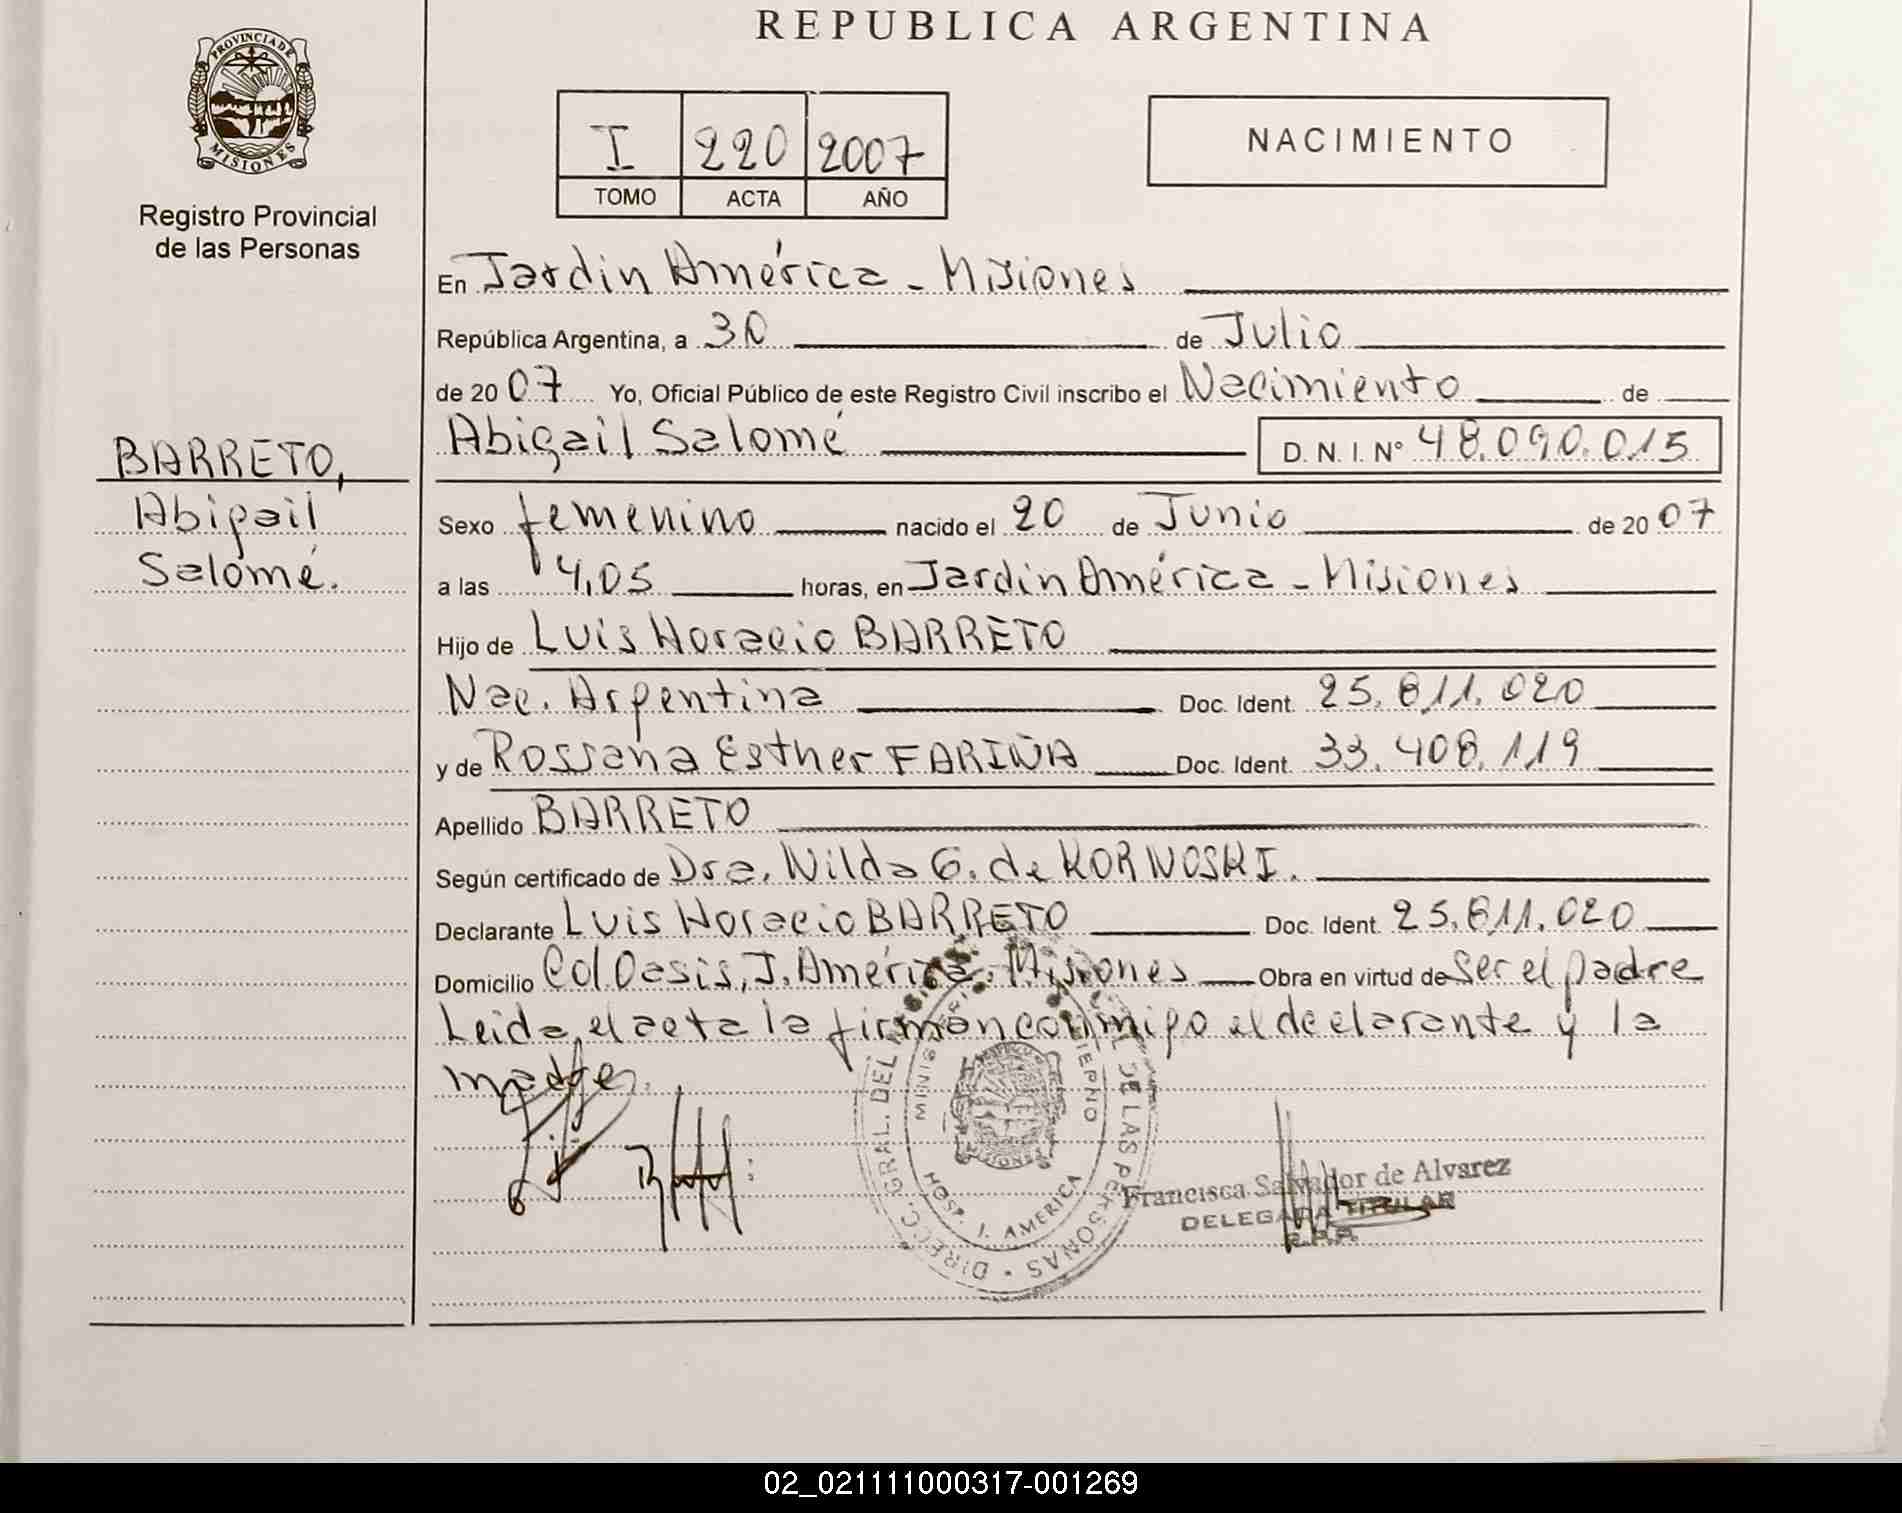 REPUBLICA ARGENTINA
PROVINCIA DE
MISIONES
Registro Provincial
de las Personas
I 220 2007
TOMO ACTA AÑO
NACIMIENTO
En Jardín América - Misiones
República Argentina, a 30 de Julio
de 2007 Yo, Oficial Público de este Registro Civil inscribo el Nacimiento de
Abigail Salomé D. N. I. N° 48.090.015
BARRETO,
Abigail
Salomé.
Sexo femenino nacido el 20 de Junio de 2007
a las 4,05 horas, en Jardín América - Misiones
Hijo de Luis Horacio BARRETO
Nac. Argentina Doc. Ident. 25.811.020
y de Rossana Esther FARIÑA Doc. Ident. 33.408.119
Apellido BARRETO
Según certificado de Dra. Nilda G. de KORNOSKI.
Declarante Luis Horacio BARRETO Doc. Ident. 25.811.020
Domicilio Col. Oasis, J. América. Misiones Obra en virtud de Ser el padre
Leida el acta la firman conmigo el declarante y la
madre.
DIRECC. GRAL. DEL DE LAS PERSONAS
HOSP. J. AMERICA
MISIONES
Francisca Salvador de Alvarez
DELEGADA TITULAR
R.P.P.
02_021111000317-001269